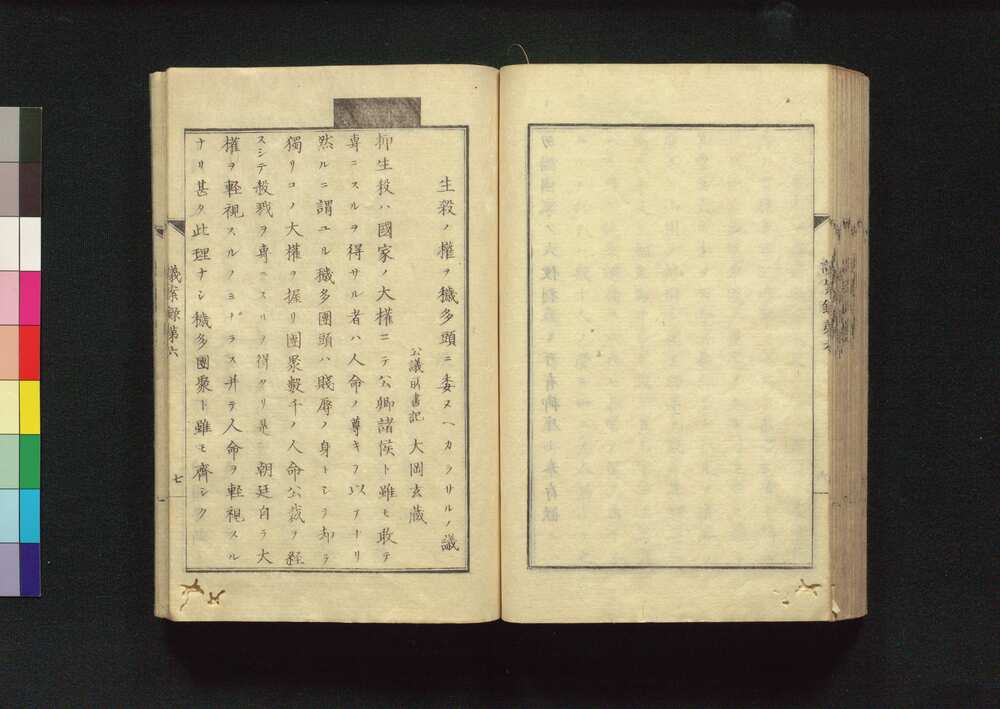 生殺ノ權ヲ穢多頭ニ委ヌヘカラサルノ議
公議所書記 大岡玄蔵
抑生殺ハ國家ノ大權ニテ公卿諸侯ト雖モ敢テ
専ニスルヲ得サル者ハ人命ノ尊キヲ以テナリ
然ルニ謂ユル穢多團頭ハ賤辱ノ身トシテ却テ
獨リコノ大權ヲ握リ團衆數千ノ人命公裁ヲ経
スシテ殺戮ヲ専ニスルヲ得タリ是レ朝廷自ラ大
權ヲ軽視スルノミナラス并テ人命ヲ軽視スル
ナリ甚タ此理ナシ穢多團聚ト雖モ齊シク
議案録第六
七